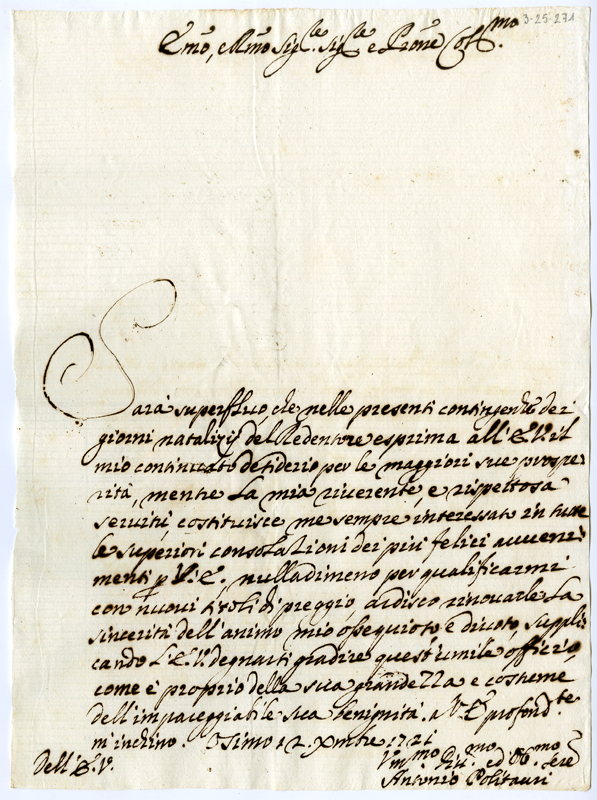 3-25-271
Em̃o, e Rm̃o Sig.re Sig.re e Prõne Col.mo
Sarà superfluo, che nelle presenti contingenze dei
giorni natalizij del Redentore esprima all'E.V. il
mio continuato desiderio per le maggiori sue prospe
rità, mentre la mia riverente, e rispettosa
servitù costituisce me sempre interessato in tutte
le superiori consolationi dei più felici avveni
menti p V.E., nulladimeno per qualificarmi
con nuovi titoli di preggio, ardisco rinovarle la
sincerità dell'animo mio ossequioso e divoto, suppli
cando L'E.V. degnarsi gradire quest'umile officio,
come è proprio della sua grandezza e costume
dell'impareggiabile sua benignità. a V.E. profond.te
m'inchino. Osimo 12. Xmbre 1721
Dell'E.V.
Vm.mo Div.mo ed Ob.mo Sere
Antonio Politauri